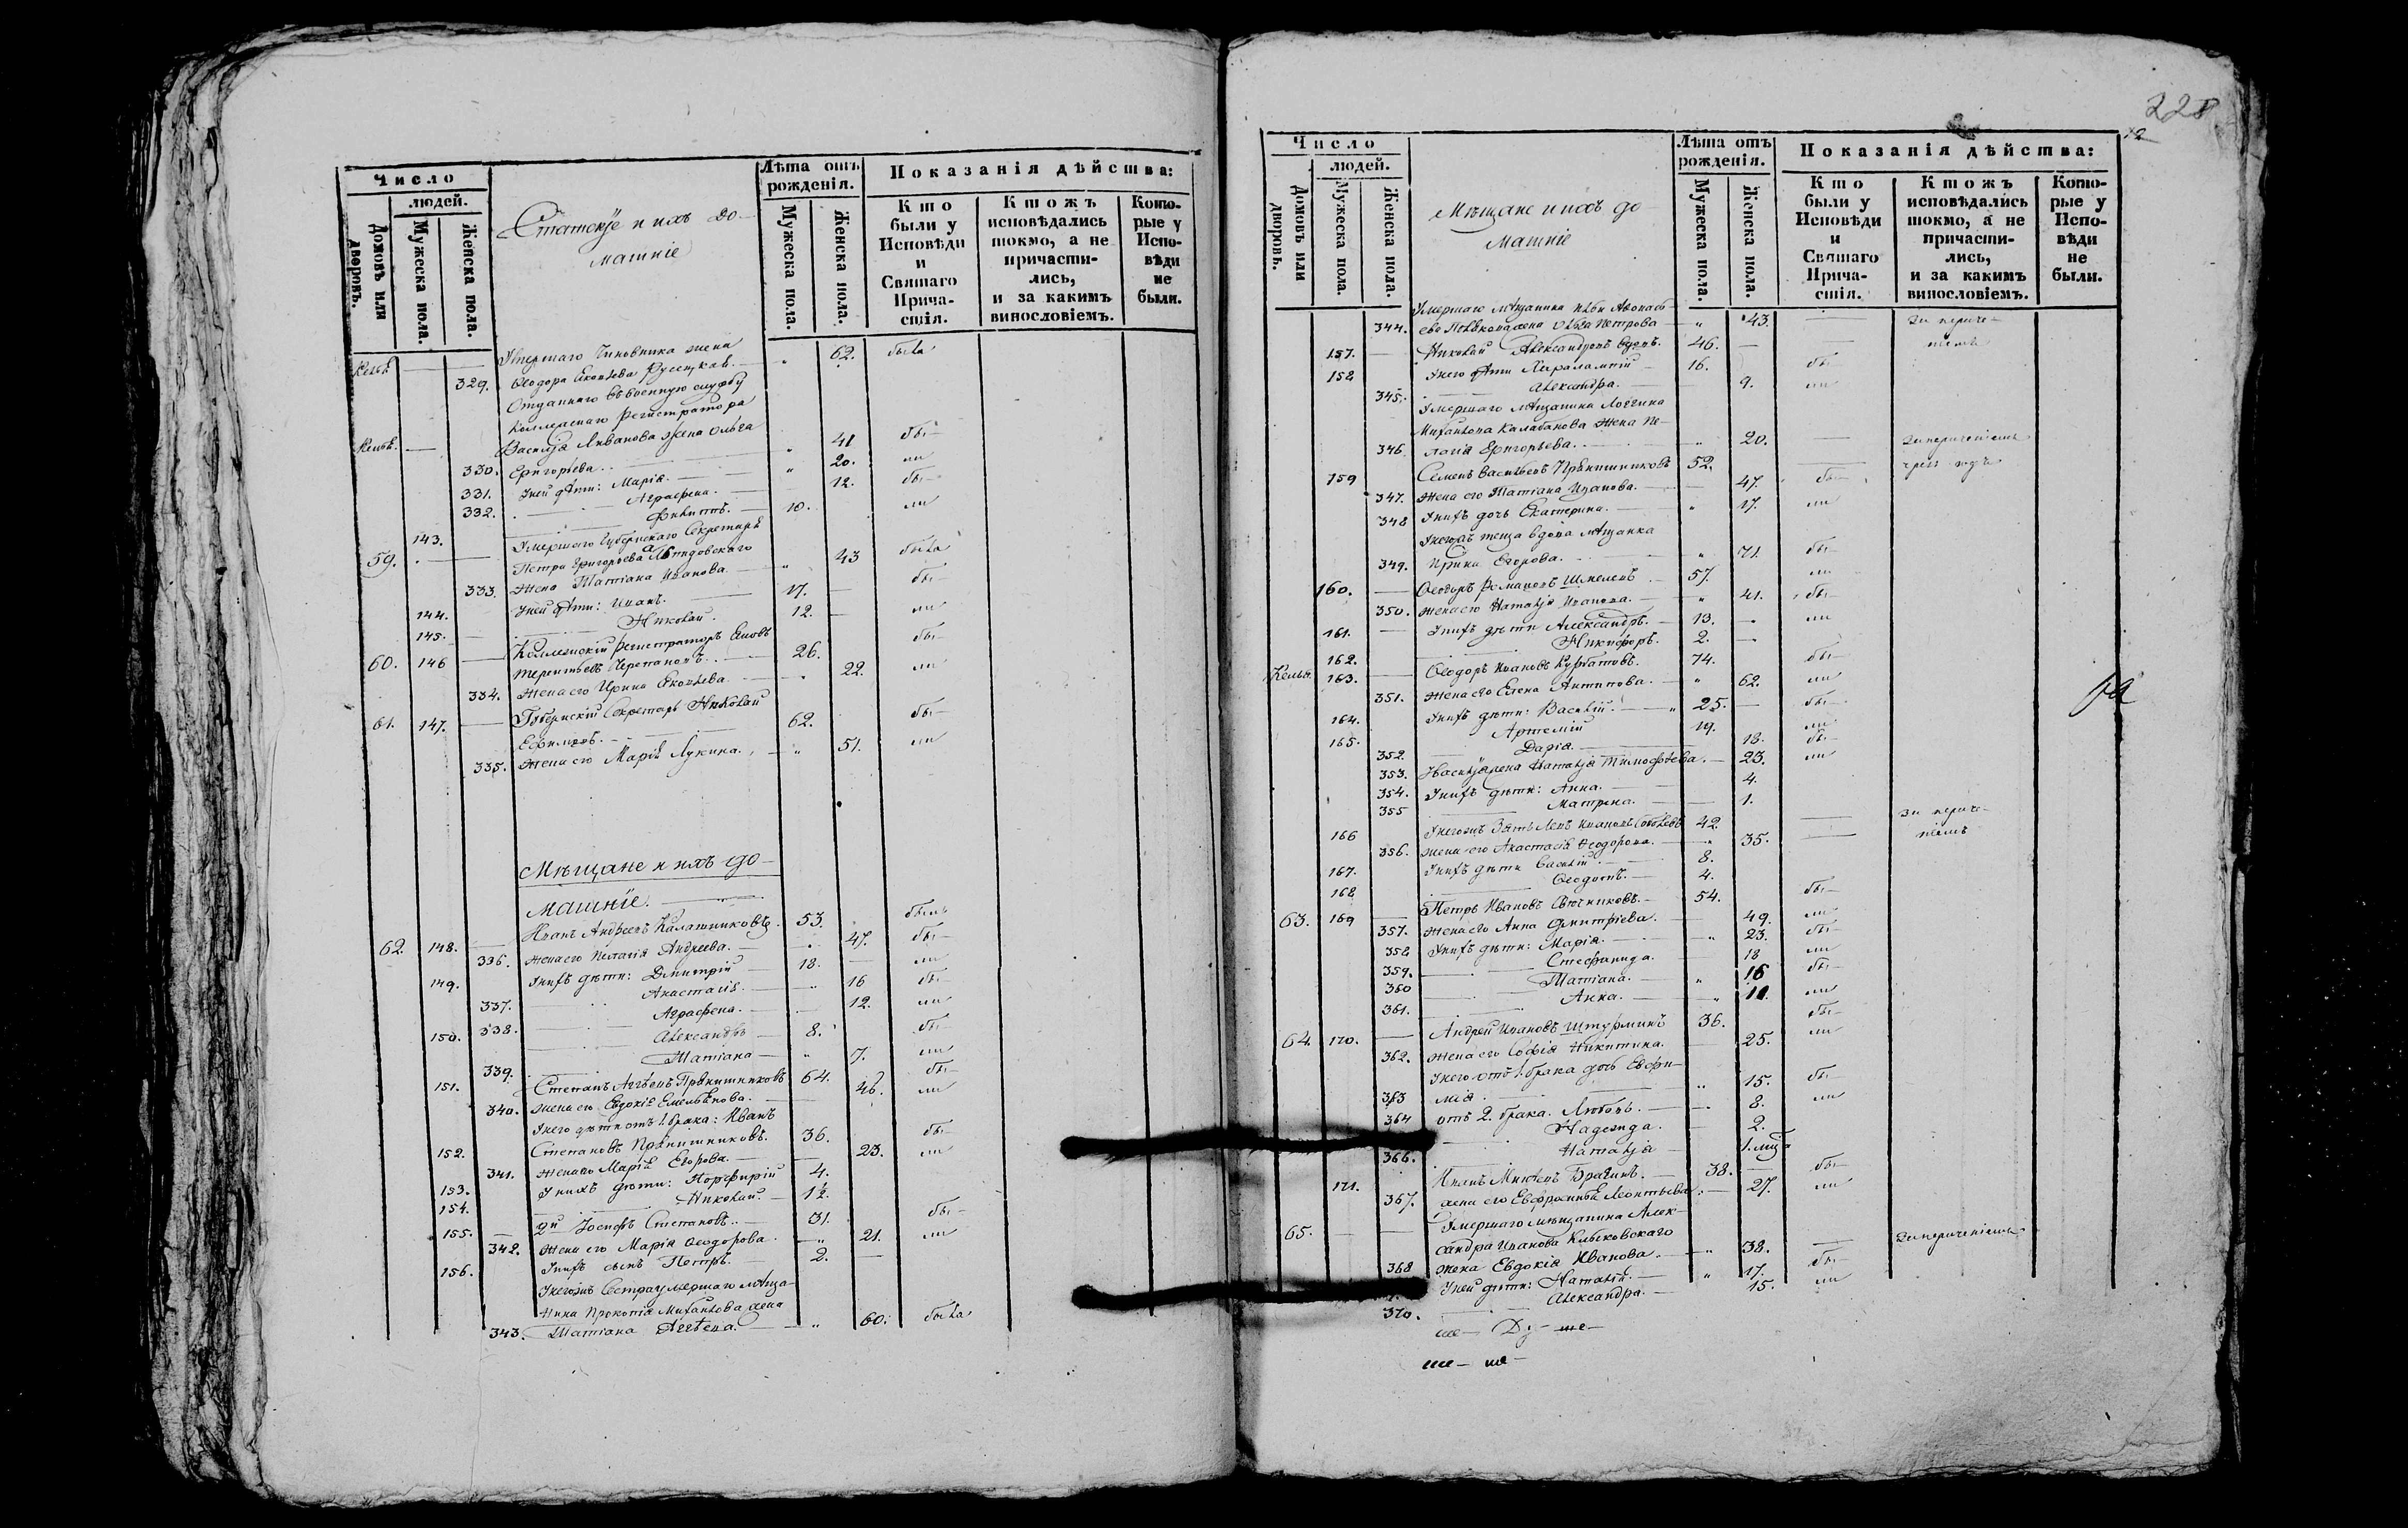 Число
людей.
Домовъ или дворовъ.
Мужеска пола.
Женска пола.
Статскіе и ихъ до-
машніе
Лѣта отъ рожденія.
Мужеска пола.
Женска пола.
Показанія дѣйства:
Кто были у Исповѣди и Святаго Прича-стія.
Ктожъ исповѣдались токмо, а не причасти-лись, и за какимъ винословіемъ.
Кото-рые у Испо-вѣди не были.
Умершаго Чиновника жена
329. Ѳеодора Яковлева 62. была
Отданнаго въ военную службу
Коллежскаго Регистратора
Василія Ливанова жена Ольга
330. Григорьева 41 бы-
331. У ней дѣти: Марія. 20. ли
332. Аграфена. 12. бы-
143. Филиппъ. 10. ли
Умершаго Губернскаго Секретаря
59. Петра Григорьева
333. Жена Татіана Иванова 43 была
144. У ней дѣти: Иванъ. 17. бы-
145. Николай. 12. ли
60. 146 Коллежскій Регистраторъ
Терентьевъ 26. бы-
334. Жена его Ирина Яковлева 22. ли
61. 147. Губернскій Секретарь Николай
Ефимовъ. 62. бы-
335. Жена его Марія Лукина. 51. ли
Мѣщане и ихъ до-
машніе.
62. 148. Иванъ Андреевъ Калашниковъ. 53. былъ
336. Жена его Пелагія Андреева. 47. бы-
149. У нихъ дѣти: Дмитрій 18. ли
337. Анастасія. 16 бы-
338. Аграфена. 12. ли
150. Александръ 8. бы-
339. Татіана 7. ли
151. Степанъ Пряничниковъ 64. бы-
340. Жена его Евдокія Емельянова. 46. ли
У него дѣти отъ 1. брака: Иванъ
152. Степановъ Пряничниковъ. 36. бы-
341. Жена его Марія Егорова. 23. ли
153. У нихъ дѣти: Порфирій 4.
154. Николай. 1½.
155. 2й Іосифъ Степановъ. 31. бы-
342. Жена его Марія Ѳеодорова 21. ли
156. У нихъ сынъ Петръ. 2.
У него жъ Сестра умершаго мѣща-
нина Прокопія Михайлова жена
343. Татіана 60. была
228
Число
людей.
Домовъ или дворовъ.
Мужеска пола.
Женска пола.
Мѣщане и ихъ до-
машніе
Лѣта отъ рожденія.
Мужеска пола.
Женска пола.
Показанія дѣйства:
Кто были у Исповѣди и Святаго Прича-стія.
Ктожъ исповѣдались токмо, а не причасти-лись, и за какимъ винословіемъ.
Кото-рые у Испо-вѣди не были.
Умершаго мѣщанина
344. жена Ольга Петрова 43.
157. Николай Александровъ вдовъ. 46.
158 У него дѣти Харалампій 16. бы-
345. Александра. 9. ли
Умершаго мѣщанина Логгина
Михайлова Калабанова жена Пе-
346. лагія Григорьева. 20.
159 Семенъ Васильевъ Пряничниковъ 52.
347. Жена его Татіана Иванова. 47. бы-
348 У нихъ дочь Екатерина. 17. ли
У него жъ теща вдова мѣщанка
349. Ирина Егорова. 71. бы-
160. Ѳеодоръ Романовъ Шмелевъ 57. ли
350. Жена его Наталія Иванова. 41. бы-
161. У нихъ дѣти Александръ. 13. ли
162. Никифоръ. 2.
Келья. 163. Ѳеодоръ Ивановъ Курбатовъ. 74. бы-
351. Жена его Елена Антипова. 62. ли
164. У нихъ дѣти: Василій. 25. бы-
165. Артемій 19. ли
352. Дарія. 18. бы-
353. У Василія жена Наталія Тимофѣева. 23. ли
354. У нихъ дѣти: Анна. 4.
355 Матрена. 1.
166 У него жъ Зять 42.
356. Жена его Анастасія Ѳеодорова. 35.
167. У нихъ дѣти Василій 8.
168 Ѳеодотъ. 4.
63. 169 Петръ Ивановъ Свѣчниковъ. 54. бы-
357. Жена его Анна Дмитріева. 49. ли
358 У нихъ дѣти: Марія. 23. бы-
359. Стефанида. 18 ли
360 Татіана. 16 бы-
361. Анна. 11. ли
64. 170. Андрей Ивановъ Штурминъ 36. бы-
362. Жена его Софія Никитина. 25. ли
У него отъ 1. брака дочь Евфи-
363 мія. 15. бы-
364 отъ 2. брака. Любовь. 8. ли
Надежда. 2.
366. Наталія 1.
171. 38. бы-
367. жена его Евфросинія Леонтьева. 27. ли
65. Умершаго мѣщанина Алек-
сандра Иванова
368 жена Евдокія Иванова. 38.
У ней дѣти: Наталія. 17. бы-
370. Александра. 15. ли